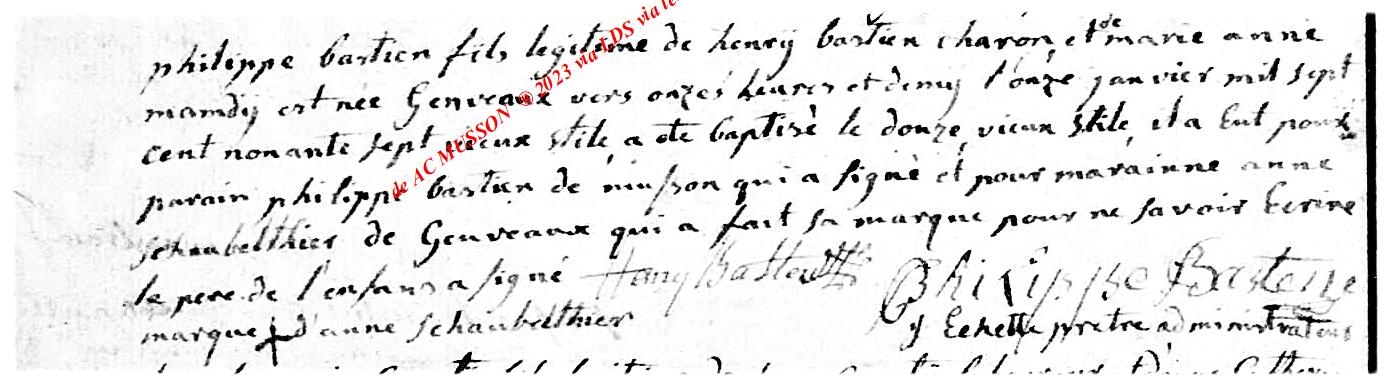 philippe bastien fils legitime de henrÿ bastien charon et de marie anne
mamdÿ est née Genveaux vers onzes heures et demÿ l'onze janvier mil sept
cent nonante sept vieux stile a ete baptisè le donze vieux stile il a Eut pour
parain philippe bastien de musson qui a signè et pour marainne anne
schaubelthier de Genveaux qui a fait sa marque pour ne savoir Ecrire
le pere de l'enfans a signé Henry Bastein Philippe Bastein
marque d'anne schaubelthier J Echette pretre administrateur
de AC MUSSON @ 2023 via LDS via